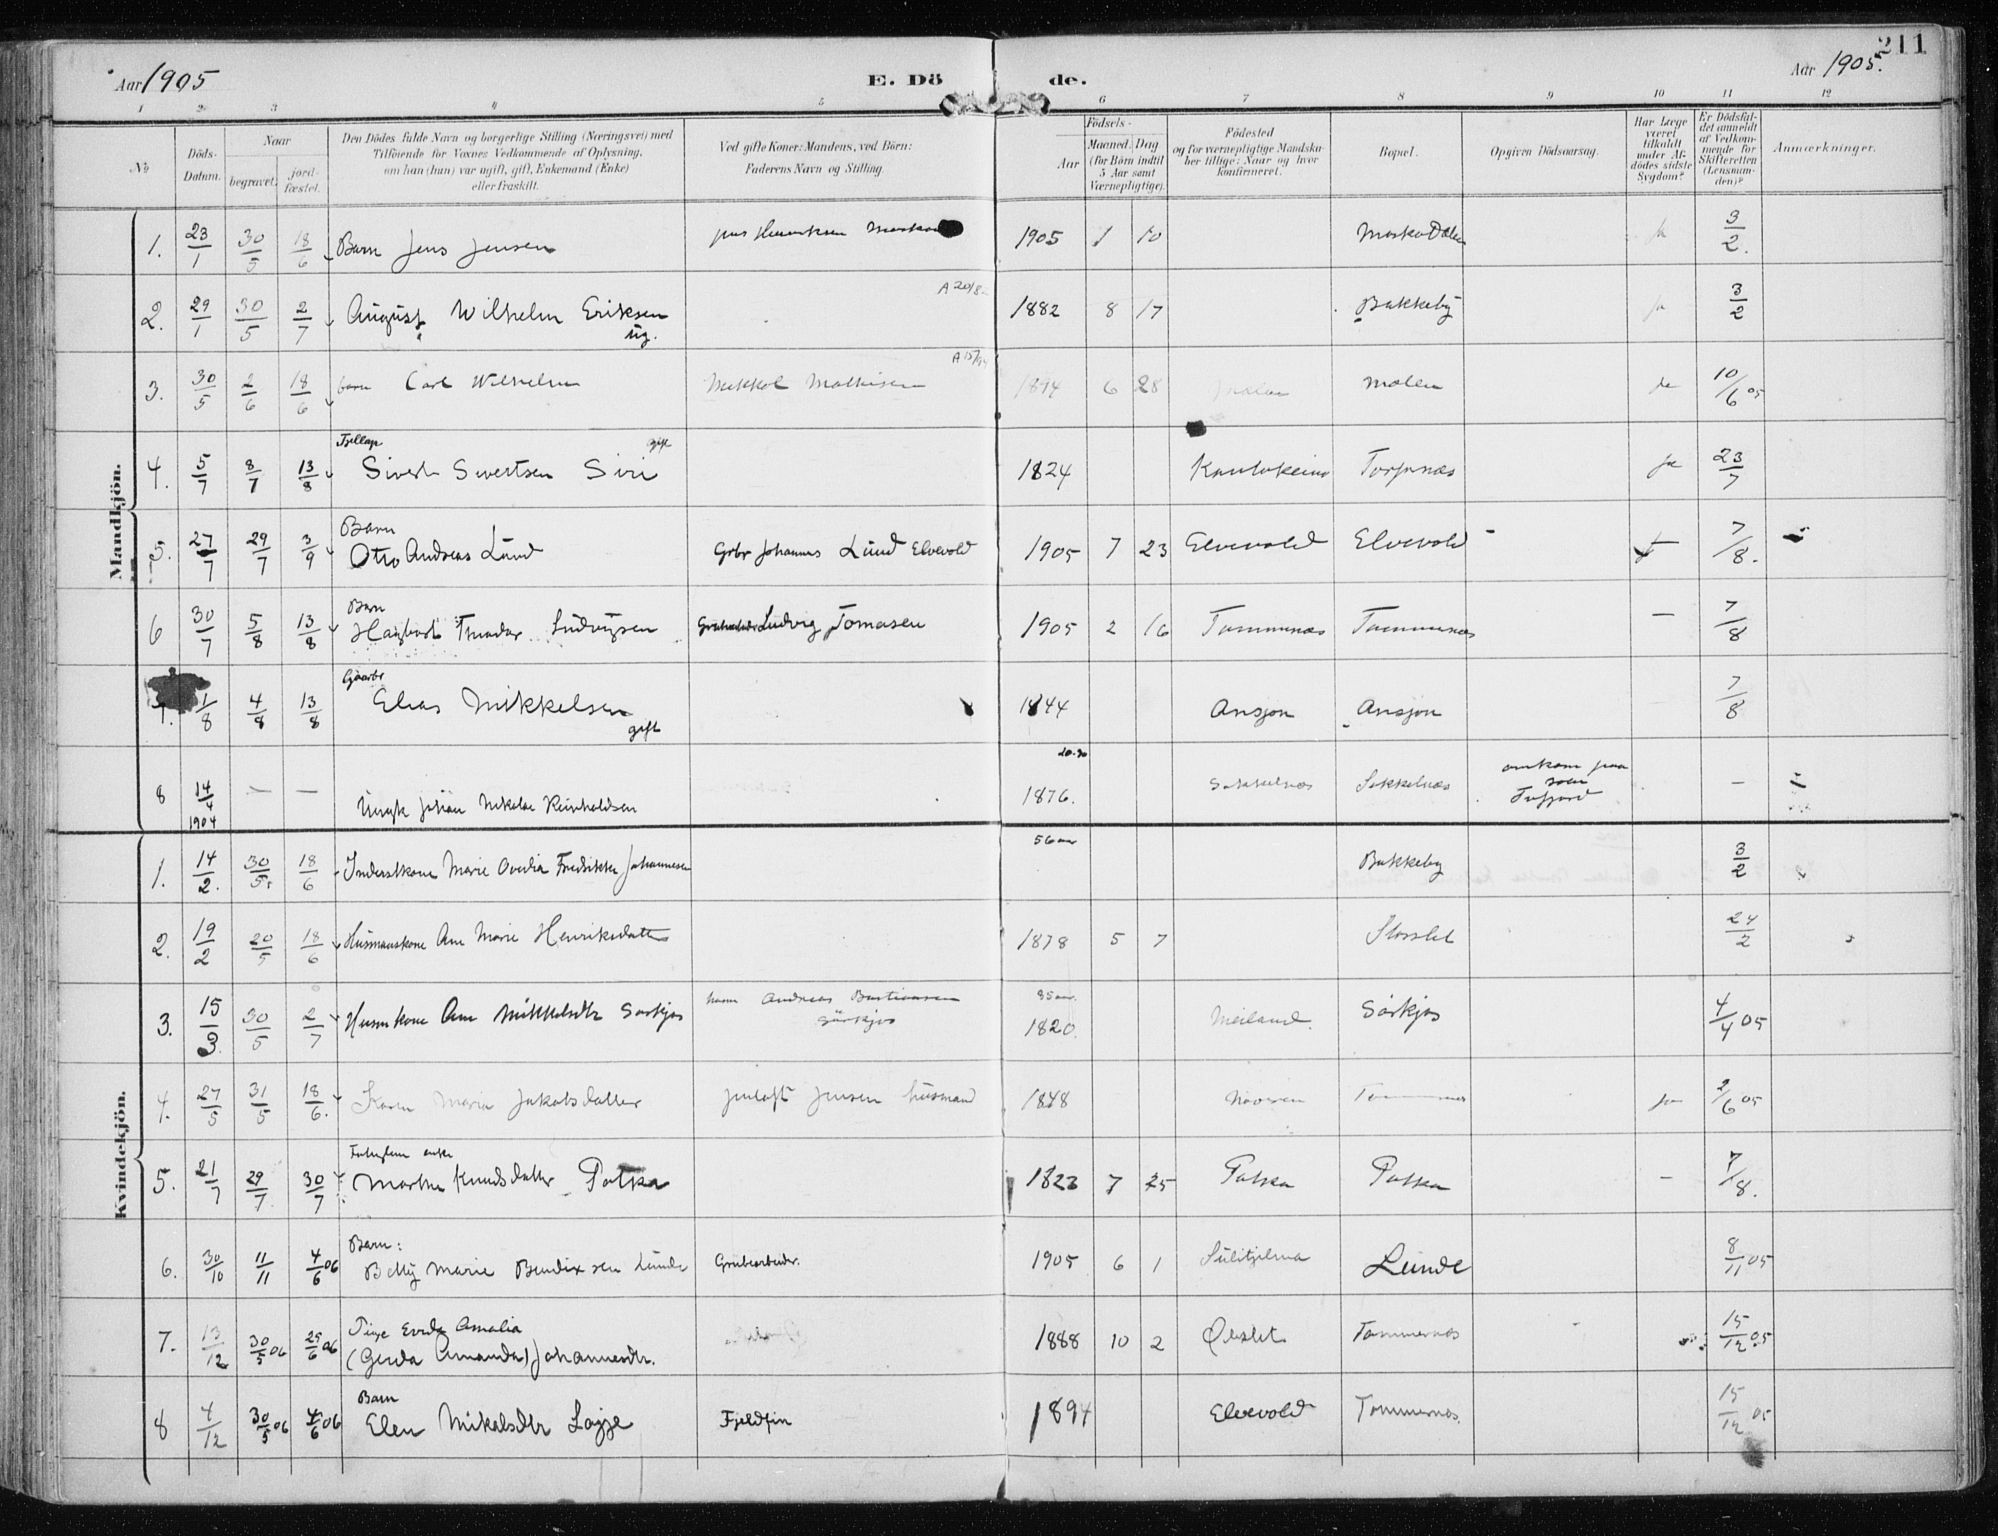 211
Aar 1905
E. Döde.
Aar 1905.
1 2 3 4 5 6 7 8 9 10 11 12
No
Döds-Datum.
Naar
begravet.
jord-fæstet.
Den Dödes fulde Navn og borgerlige Stilling (Næringsvei) med
Tilföiende for Voxnes Vedkommende af Oplysning,
om han (hun) var ugift, gift, Enkemand (Enke)
eller fraskilt.
Ved gifte Koner: Mandens, ved Börn:
Faderens Navn og Stilling.
Födsels-
Aar
Maaned. Dag
(for Börn indtil
5 Aar samt
Værnepligtige).
Födested
og for værnepligtige Mandska-
ber tillige: Naar og hvor
konfirmeret.
Bopæl.
Opgiven Dödsaarsag.
Har Læge
været
tilkaldt
under Af-
dödes sidste
Sygdom?
Er Dödsfal-
det anmeldt
af Vedkom-
mende for
Skifteretten
(Lensman-
den)?
Anmærkninger.
Mandkjön.
1. 23/1 30/5 18/6 Barn Jens Jensen 1905 1 10 ja 3/2.
A 20/8
2. 29/1 30/5 2/7 August Wilhelm Eriksen 1882 8 17 Bakkeby ja 3/2
ug.
3. 30/5 2/6 18/6 barn Carl Wilhelm Mikkel Mathisen 1894 6 28 molen ja 10/6 05
Fjellap gift
4. 5/7 8/7 13/8 Sivert Sivertsen Siri 1824 Kautokeino ja 23/7
Barn
5. 27/7 29/7 3/9 Otto Andreas Lund Grbr Johannes Lund Elvevold 1905 7 23 Elvevold Elvevold 7/8.
Barn
6 30/7 5/8 13/8 Ludvigsen Ludvig Tomasen 1905 2 16 Tømmernæs Tømmernæs — 7/8
Gaarbr
7. 1/8 4/8 13/8 Elias Mikkelsen 1844 Ansjon Ansjon 7/8
gift
8 14/4 1904 — — Ungk Johan Nikolai Reinholdsen 1876. Sokkelnæs Sokkelnæs omkom paa
—
Kvindekjön.
56 aar
1. 14/2. 30/5. 18/6 Inderstkone Marie Ovedia Fredrikke Johannesen Bakkeby 3/2
2. 19/2 20/5 18/6 Husmanskone Ane Marie Henriksdatter 1878 5 7 Storslet 24/2
3. 15/3 30/5 2/7 Husmkone Ane Mikkelsdtr Sørkjos Andreas Bastiansen
Sørkjos
85 aar.
1820. Meiland. Sørkjos 4/4 05
4. 27/5 31/5 18/6. Karen Maria Jakobsdatter Jensen husmand 1848 ja 2/6 05
enke
5. 21/7 29/7. 30/7 Marthe Knudsdatter Potka 1823 7 25 Potka Potka — 7/8.
Barn:
6. 30/10 11/11 4/6 06 Betty Marie Bendixsen Lunde Grubearbeider. 1905 6 1 Sulitjelma Lunde 8/11 05
Pige Evida Amalia
7. 13/12 30/5 06 25/6 06 (Gerda Amanda) Johannesdtr. 1888 10 2 Oxslet Tømmernes 15/12 05
Barn
8 4/12 30/5 06 4/6 06 Elen Mikalsdtr Logje Fjeldfin 1894 Elvevold Tømmernes. 15/12 05